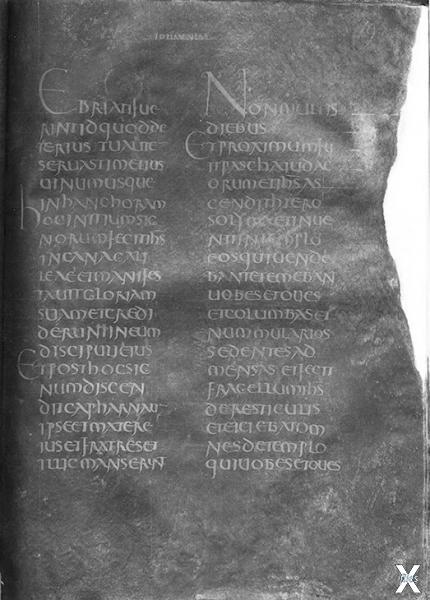 EBRIATIFUE
RINTIDQUODDE
TERIUS TUAUTE
SERUASTIMELIUS
UINUMUSQUE
INHANCHORAM
HOCINITIUMSIG
NORUMFECITIHS
INCANAGALI
LEAEETMANIFES
TAUITGLORIAM
SUAMETCREDI
DERUNTINEUM
DISCIPULIEIUS
ETPOSTHOCSIG
NUMDISCEN
DITCAPHARNAU
IPSEETMATERE
IUSETFRATRESET
ILLICMANSERUNT
NONMULTIS
DIEBUS
ETPROXIMUMFU
ITPASCHAIUDAE
ORUMETIHSAS
CENDITHIERO
SOLYMAETINUE
NITINTEMPLO
EOSQUIUENDE
BANTETEMEBAN
UOBESETOUES
ETCOLUMBASET
NUMMULARIOS
SEDENTESAD
MENSAS ETFECIT
FRAGELLUMIHS
DERESTICULIS
ETEICIEBATOM
NESDETEMPLO
QUIUOBESETOUES